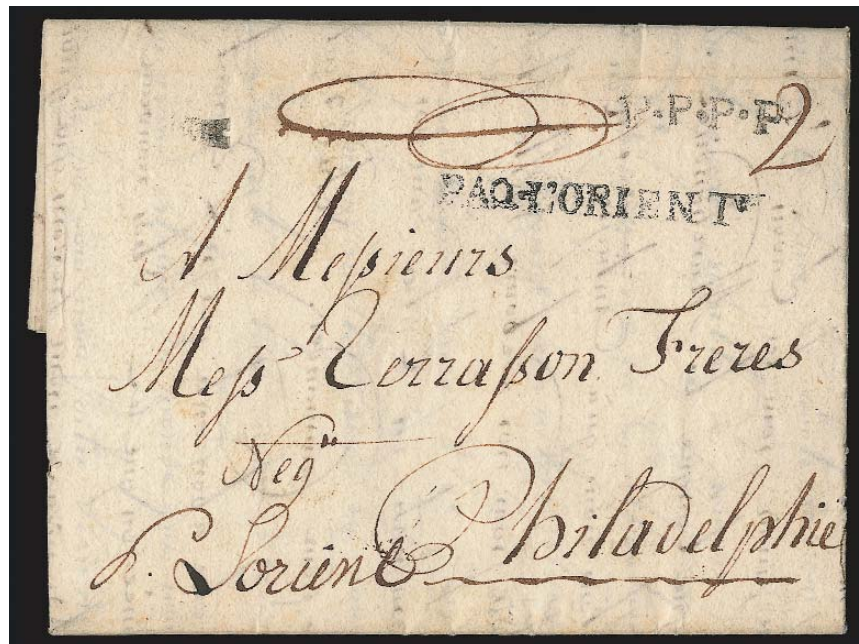 ·P·P·P·P· 2
PAQ·L'ORIENT
A Messieurs
Mess.rs Terrasson Freres
Neg.ts
p. Lorient Philadelphie